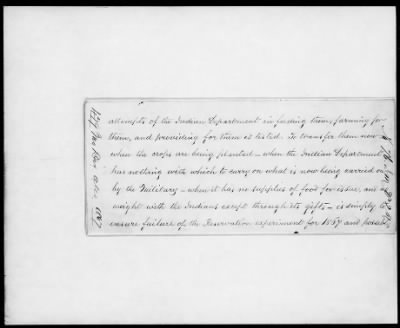 attempts of the Indian Department in feeding them, farming for
them, and providing for them is tested. To transfer them now
when the crops are being planted – when the Indian Department
has nothing with which to carry on what is now being carried on
by the Military – when it has no supplies of food for issue, and no
weight with the Indians except through its gifts – is simply to
ensure failure of the Reservation experiment for 1887 and possib